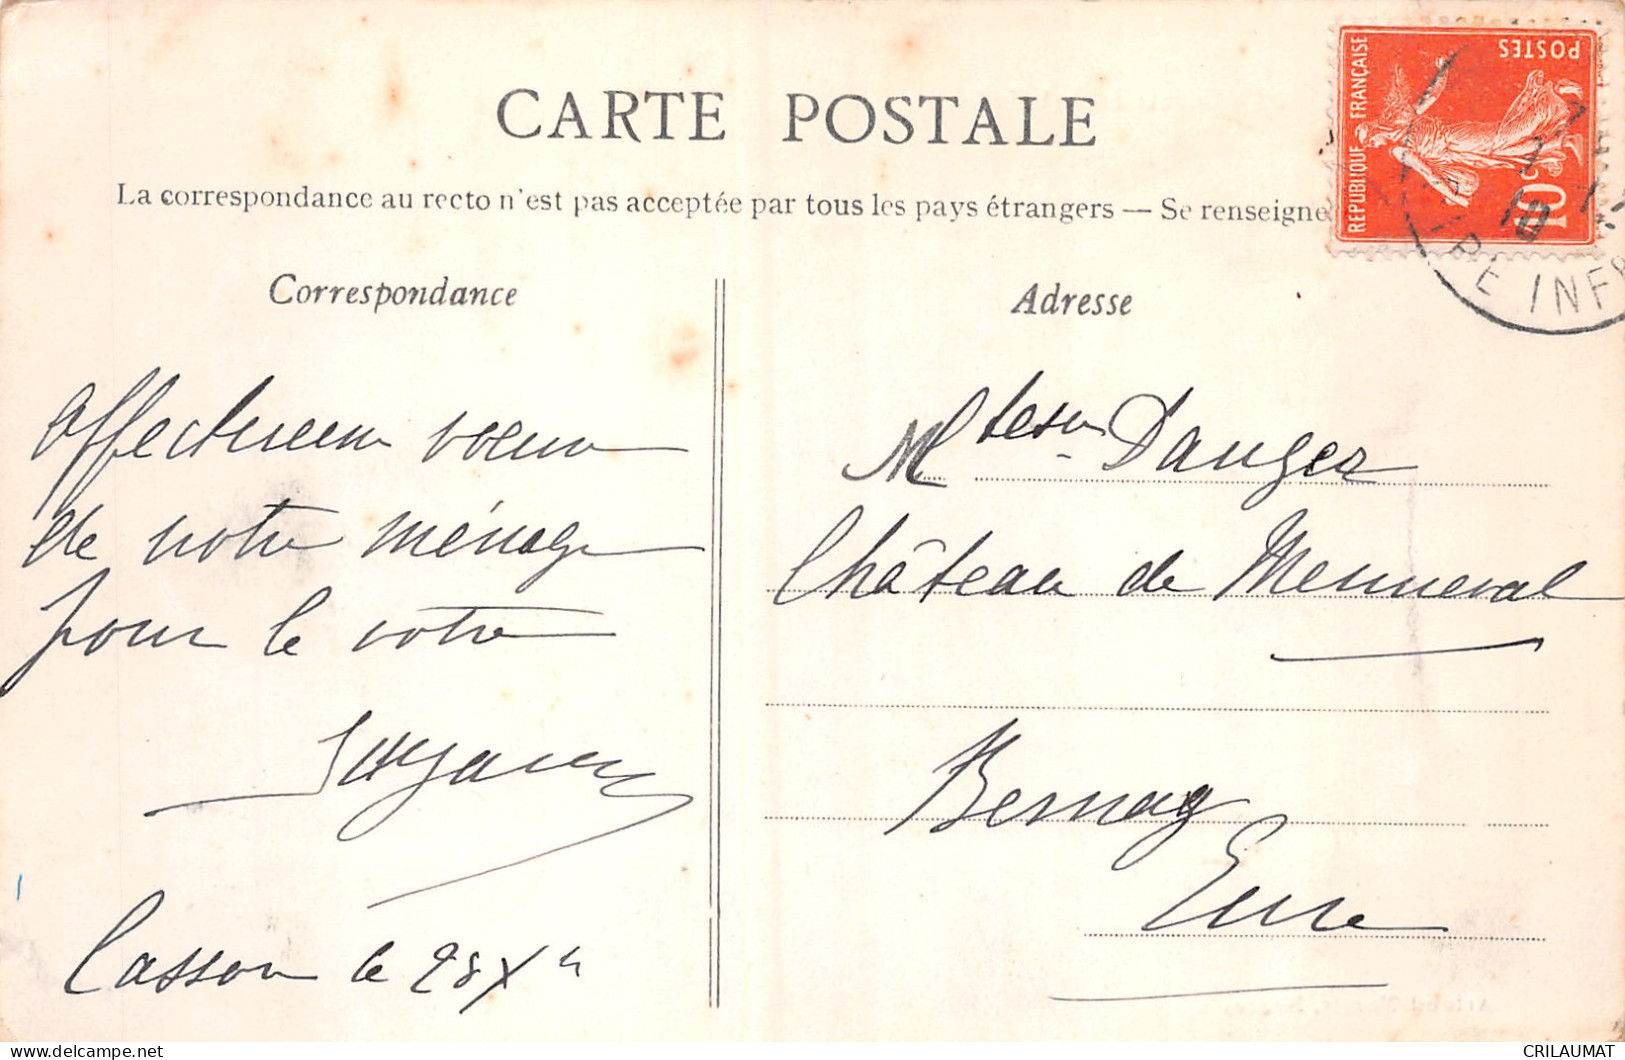 CARTE POSTALE
La correspondance au recto n'est pas acceptée par tous les pays étrangers — Se renseigne
REPUBLIQUE FRANÇAISE
POSTES
10c
10
INF
Correspondance
Affectueux vœux
de notre ménage
pour le votre
Casson le 28 Xbre
Adresse
Danger
Château de Menneval
Bernay
Eure
CRILAUMAT